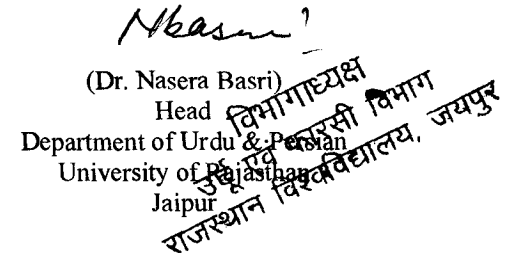 Nbasri
(Dr. Nasera Basri)
Head
Department of Urdu & Persian
University of Rajasthan
Jaipur
विभागाध्यक्ष
उर्दू एवं फारसी विभाग
राजस्थान विश्वविद्यालय, जयपुर